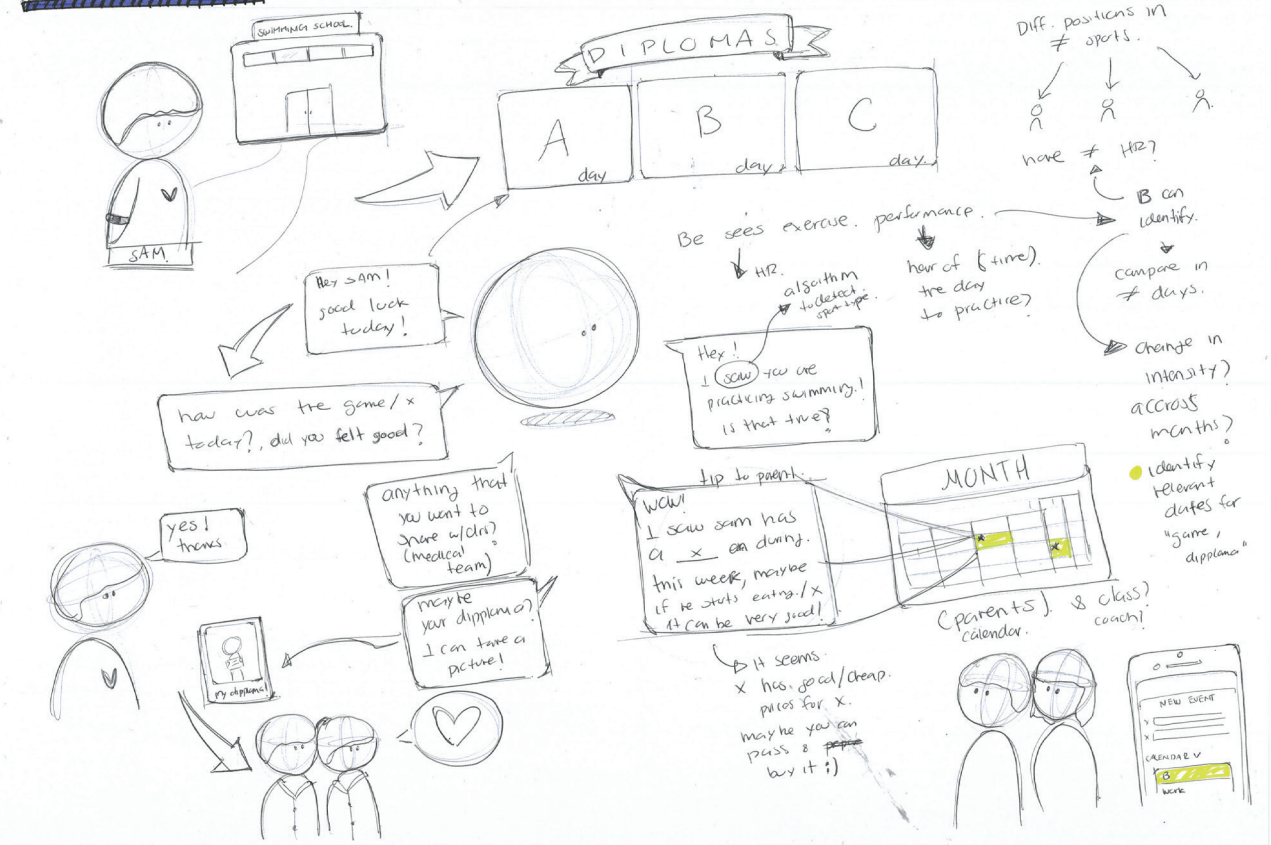 SWIMMING SCHOOL.
SAM.
DIPLOMAS
A
day
B
day
C
day
Diff. positions in
≠ spots.
have ≠ HR?
B can
identify.
compare in
≠ days.
Change in
intensity?
accross
months?
identify
relevant
dates for
"game,
dipploma"
Be sees exercise. performance.
HR.
algorithm
to detect
sport type.
hour of (time).
the day
to practice?
Hey SAM!
good luck
today!
how was the game/x
today?, did you felt good?
Hey!
I saw you are
practicing swimming!
is that true?
anything that
you want to
share w/drs?
(medical
team)
yes!
thanks
maybe
your dipploma?
I can take a
picture!
my dipploma!
tip to parent.
WOW!
I saw sam has
a x on during.
this week, maybe
if he stats eating/x
it can be very good!
B it seems.
x has good/cheap.
prices for x.
maybe you can
pass &
buy it :)
MONTH
(parents).
calendar.
& class?
coach?
NEW EVENT
x
x
CALENDAR V
B
WORK